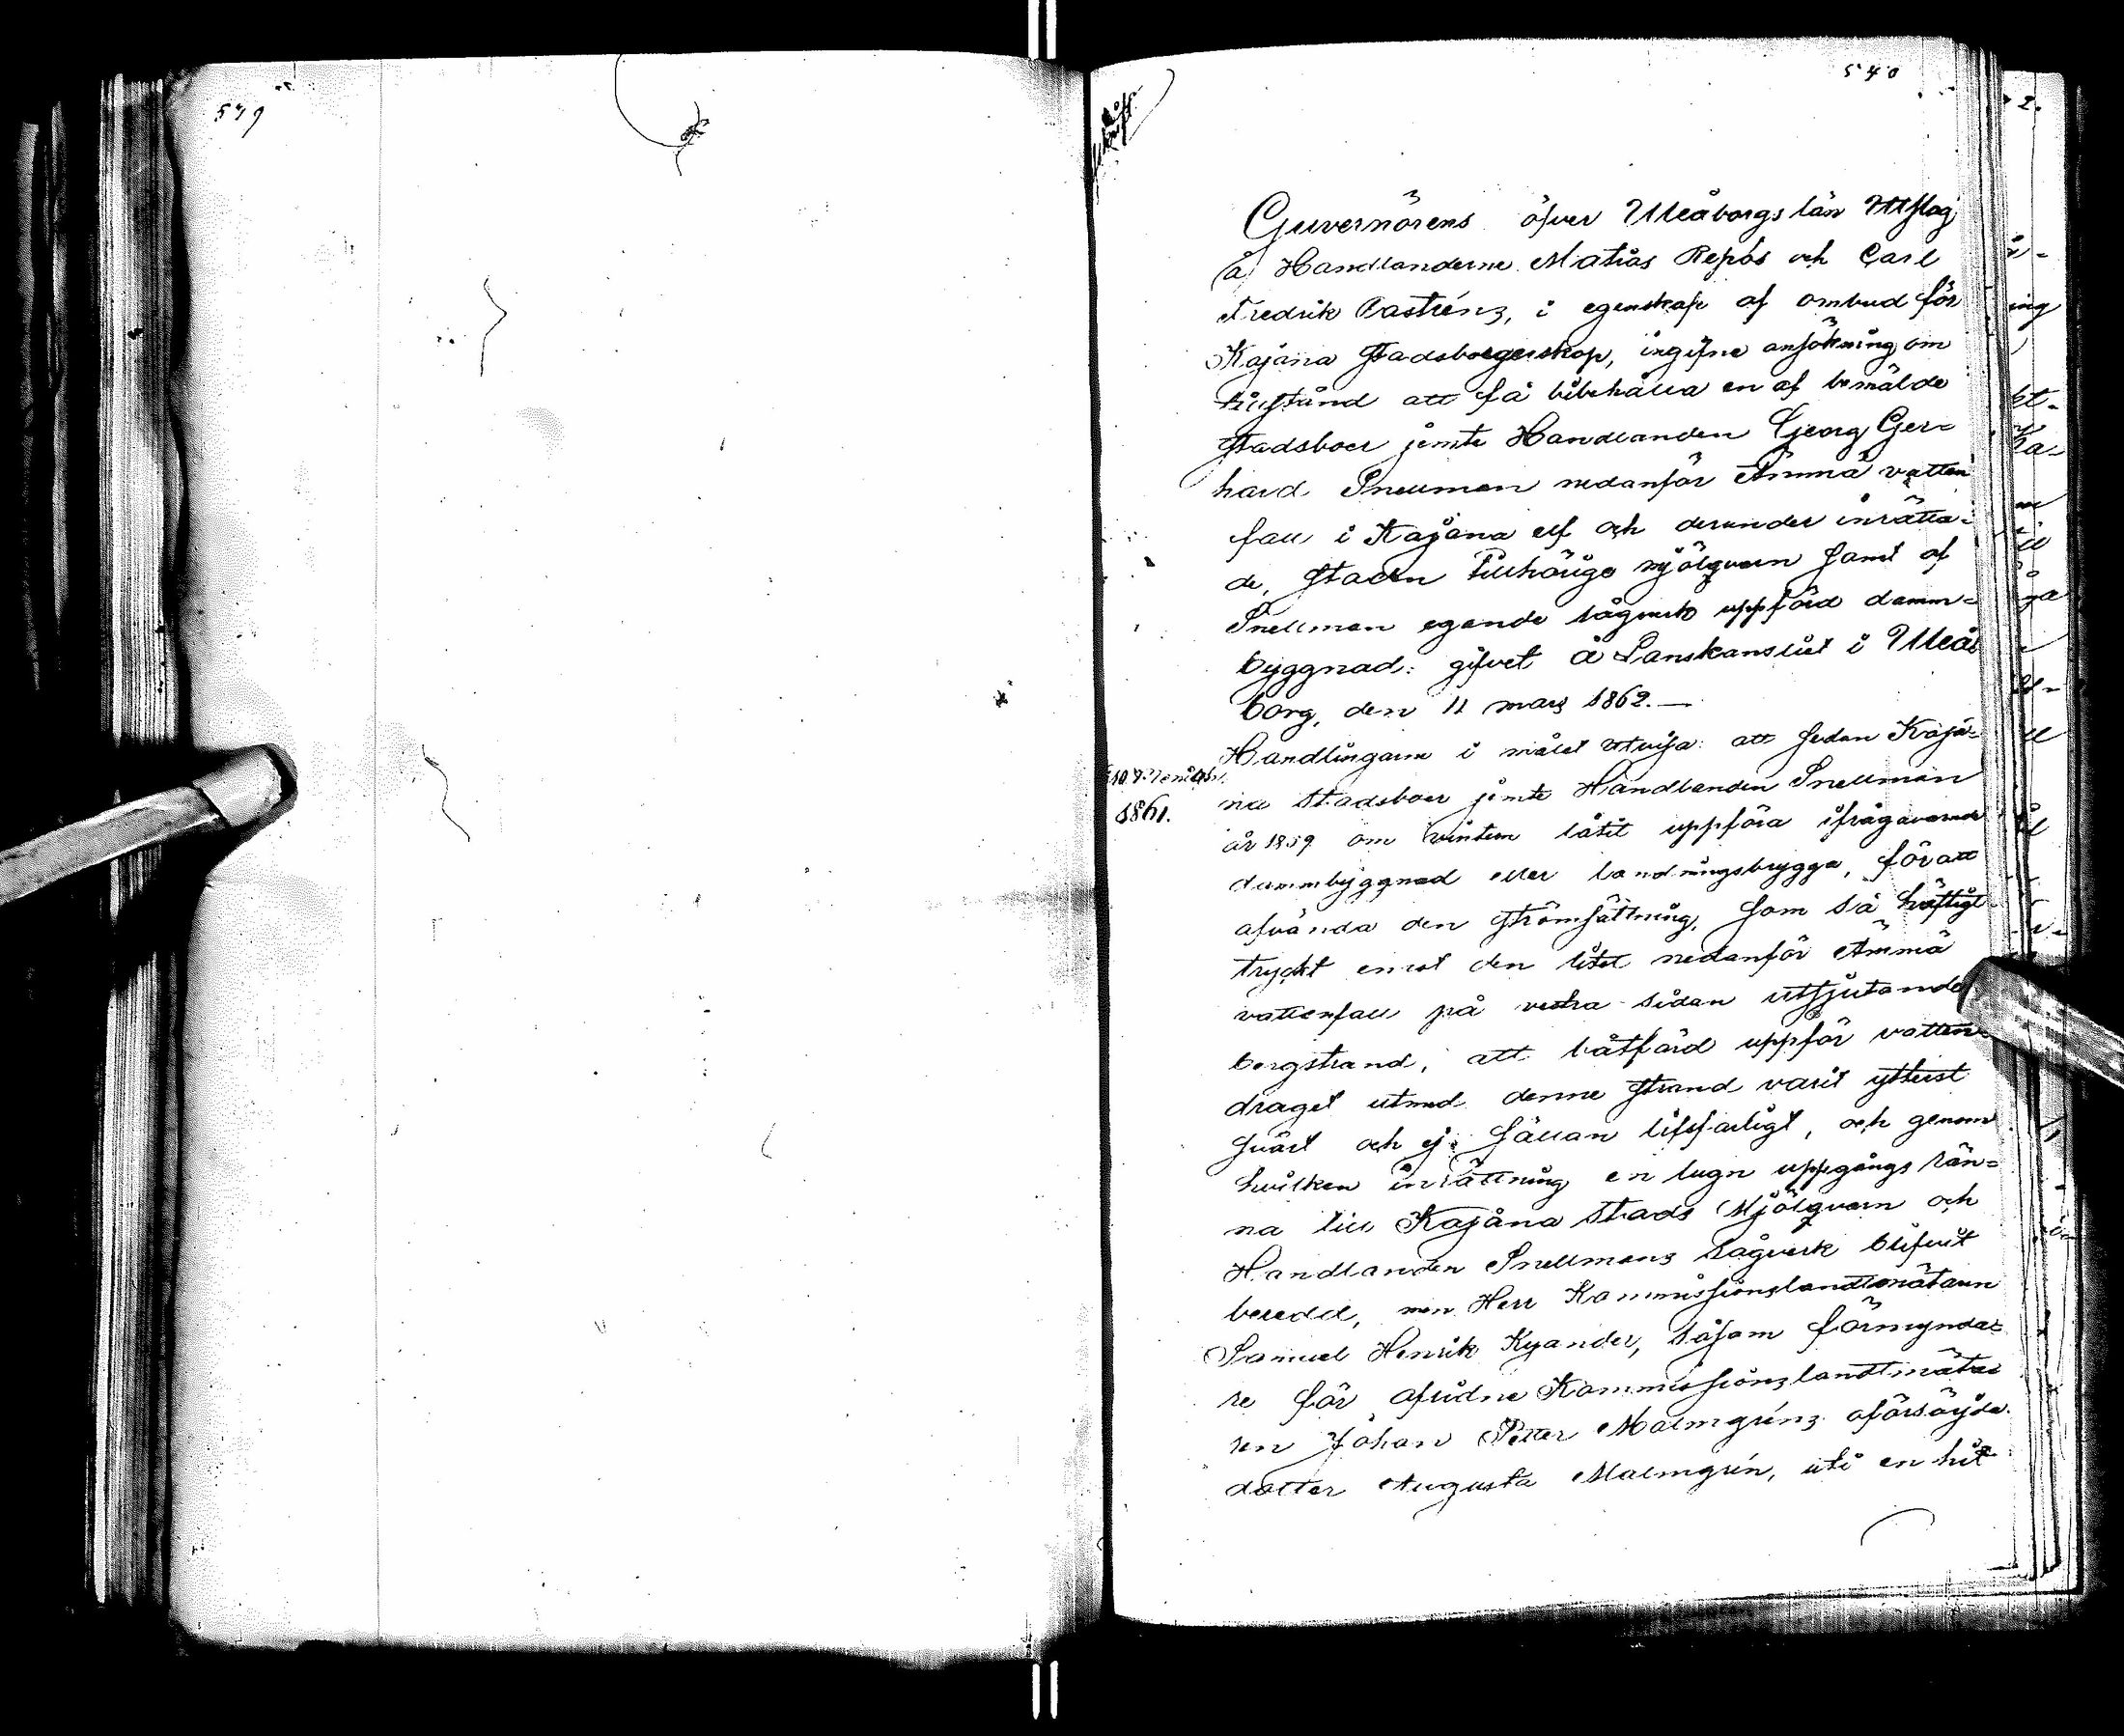 579
540
afskrift
Guvernörens öfver Uleåborgs län Utslag
å Handlanderne Matias Repos och Carl
Fredrik Castréns, i egenskap af ombud för
Kajana stadsborgerskap, ingifne ansökning om
tillstånd att få bibehålla en af bemälde
stadsboer jemte Handlanden Georg Ger=
hard Snellman nedanför Ämmä vatten
fall i Kajana elf och derunder inrätta=
de, staden tillhörige mjölqvarn samt af
Snellman egande sågverk uppförd damm=
byggnad: gifvet å Lanskansliet i Uleå
borg, den 11 mars 1862.—
Handlingarne i målet utvisa: att sedan Kaja=
1861.
na stadsboer jemte Handlanden Snellman
år 1859 om vintern låtit uppföra ifrågavarande
dammbyggnad eller landningsbrygga, för att
afvända den strömsättning, som så häftigt
tryckt emot den litet nedanför Ämmä
vattenfall på vestra sidan utskjutande
bergstrand, att båtfärd uppför vatten=
draget utmed denne strand varit ytterst
svårt och ej sällan lifsfarligt, och genom
hvilken inrättning en lugn uppgångs rän=
na till Kajana stads Mjölqvarn och
Handlanden Snellmans sågverk blifvit
beredd, men Herr Kommissionslandtmätaren
Samuel Henrik Kyander, såsom förmynda=
re för aflidne Kommissionslandtmäta=
ren Johan Petter Malmgréns oförsörjda
dotter Augusta Malmgrén, uti en hit